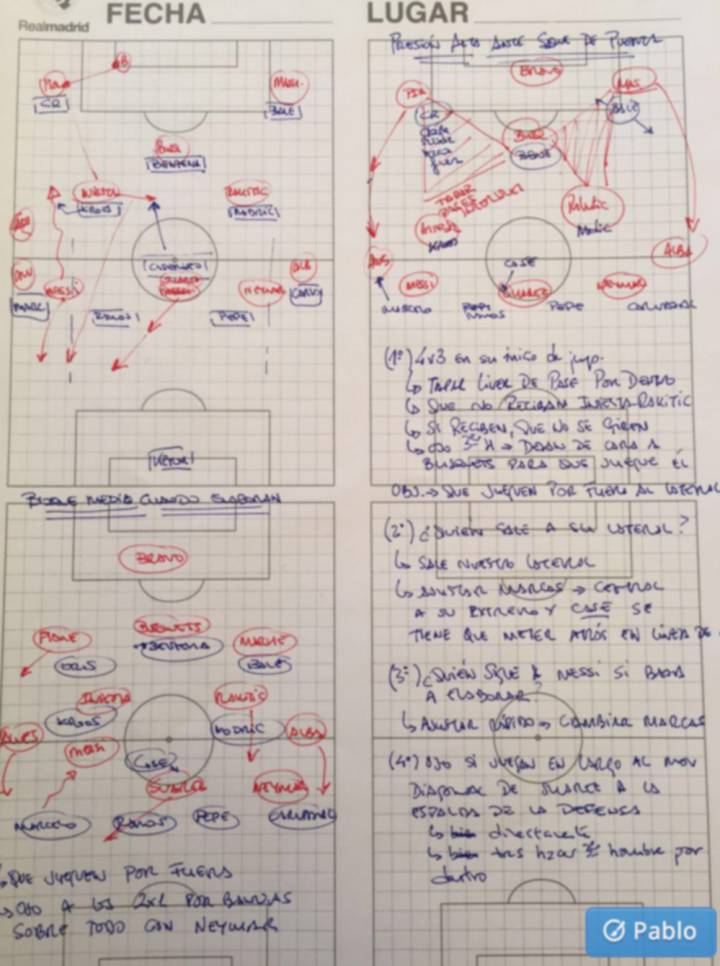 Realmadrid
FECHA
LUGAR
PRESIÓN ALTA ANTE SAQUE DE PUERTA
B
PIQUE
CR
MATH.
BALE
BUSI
BENZEMA
INIESTA
KROOS
RAKITIC
MODRIC
CASEMIRO
SUAREZ
MESSI
NEYMAR
ALB
CARVA
MARC
RAMOS
PEPE
KEYLOR
BRAVO
PIK
MAS
CR
BALE
BUSI
BENZE
TAPAR
INIESTA
KROOS
Rakitic
Modric
ALBA
ALVES
CASE
MESSI
SUAREZ
NEYMAR
MARCELO
PEPE
RAMOS
PEPE
CARVAJAL
(1º) 4x3 en su inicio de juego.
↳ TAPAR LINEA DE PASE POR DENTRO
↳ QUE NO RECIBAN INIESTA-RAKITIC
↳ SI RECIBEN, QUE NO SE GIREN
↳ OJO 3er H → DEJAN DE CARA A
BUSQUETS PARA QUE JUEGUE ÉL
OBJ. → QUE JUEGUEN POR FUERA AL LATERAL
BLOQUE MEDIO CUANDO ELABORAN
BRAVO
PIQUE
CRIS
BUSQUETS
BENZEMA
MATHIE
BALE
INIESTA
KROOS
RAKITIC
MODRIC
ALVES
MESSI
CASE
ALBA
SUAREZ
NEYMAR
MARCELO
RAMOS
PEPE
CARVAJAL
↳ QUE JUEGUEN POR FUERA
↳ OJO A LOS 2x1 POR BANDAS
SOBRE TODO CON NEYMAR
(2º) ¿QUIEN SALE A SU LATERAL?
↳ SALE NUESTRO LATERAL
↳ AJUSTAR MARCAS → CENTRAL
A SU EXTREMO Y CASE SE
TIENE QUE METER ATRÁS EN LÍNEA DE
(3º) ¿QUIÉN SIGUE A MESSI SI BAJA
A ELABORAR?
↳ AJUSTAR RÁPIDO → CAMBIAR MARCAS
(4º) OJO SI JUEGAN EN LARGO AL MOV
DIAGONAL DE SUAREZ A LA
ESPALDA DE LA DEFENSA
↳ bien directamente
↳ bien tras hacer 3er hombre por
dentro
Pablo